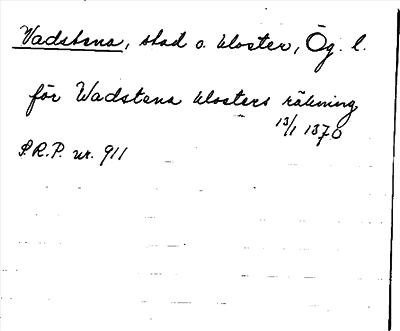 Wadstena, stad o. kloster, Ög. l.
för Wadstena klosters räkning
13/1 1370
S.R.P. nr. 911